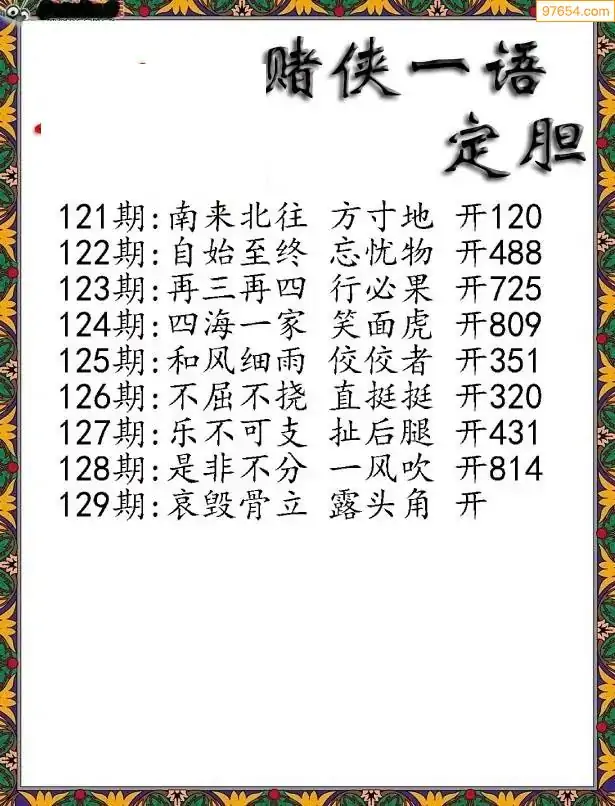 97654.com
赌侠一语
定胆
121期:南来北往 方寸地 开120
122期:自始至终 忘忧物 开488
123期:再三再四 行必果 开725
124期:四海一家 笑面虎 开809
125期:和风细雨 佼佼者 开351
126期:不屈不挠 直挺挺 开320
127期:乐不可支 扯后腿 开431
128期:是非不分 一风吹 开814
129期:哀毁骨立 露头角 开